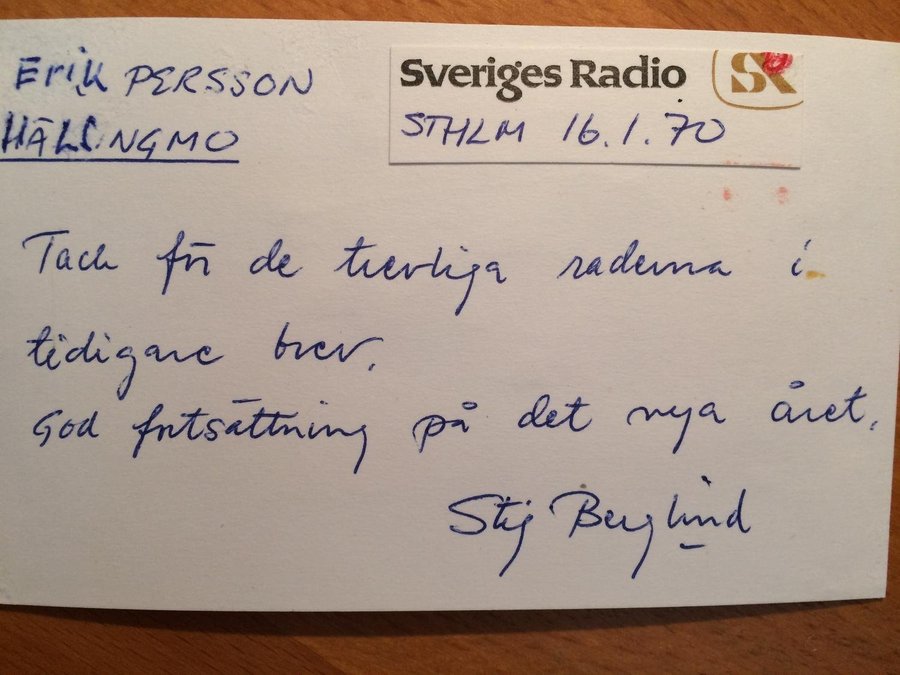 Erik PERSSON
HÄLSINGMO
Sveriges Radio SR
STHLM 16.1.70
Tack för de trevliga raderna i
tidigare brev.
God fortsättning på det nya året.
Stig Berglind